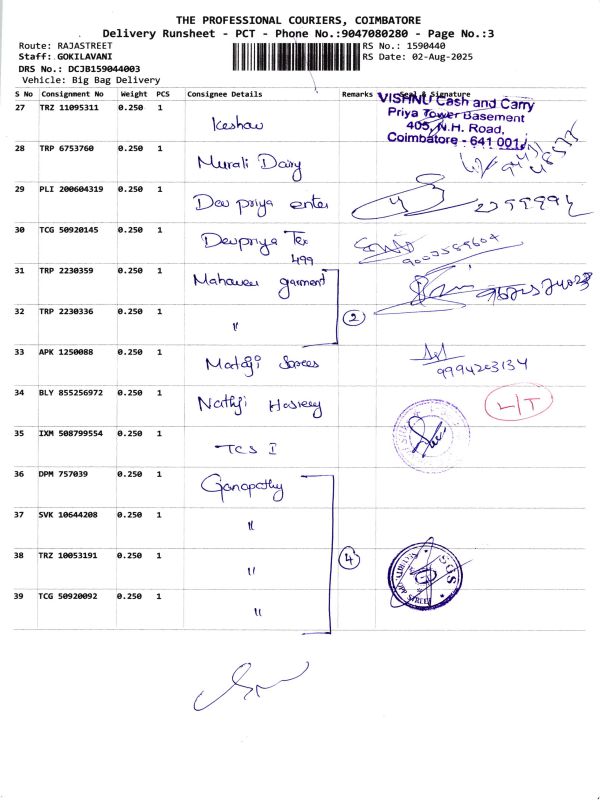 THE PROFESSIONAL COURIERS, COIMBATORE
Delivery Runsheet - PCT - Phone No.:9047080280 - Page No.:3
Route: RAJASTREET
RS No.: 1590440
Staff: GOKILAVANI
RS Date: 02-Aug-2025
DRS No.: DCJB159044003
Vehicle: Big Bag Delivery
S No Consignment No Weight PCS Consignee Details Remarks Seal & Signature
VISHNU Cash and Carry
Priya Tower Basement
405, N.H. Road,
Coimbatore - 641 001
27 TRZ 11095311 0.250 1 Keshav
28 TRP 6753760 0.250 1 Murali Dairy
29 PLI 200604319 0.250 1 Dev priya enter
30 TCG 50920145 0.250 1 Devpriya Tex
499
9002589604
31 TRP 2230359 0.250 1 garment
32 TRP 2230336 0.250 1 〃 2
33 APK 1250088 0.250 1 Mataji
9994203134
34 BLY 855256972 0.250 1 Nathji L/T
35 IXM 508799554 0.250 1 TCS I
36 DPM 757039 0.250 1 Ganapathy
37 SVK 10644208 0.250 1 〃
38 TRZ 10053191 0.250 1 〃 4
39 TCG 50920092 0.250 1 〃
SGS